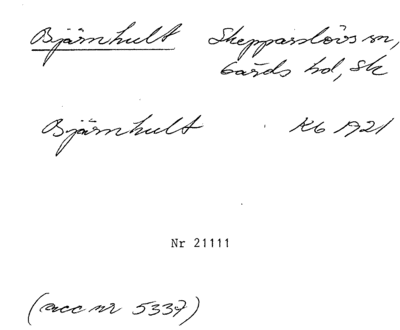 Bjärnhult Skepparslövs sn,
Gärds hd, Sk
Bjärnhult Kb 1921
Nr 21111
(acc nr 5337)